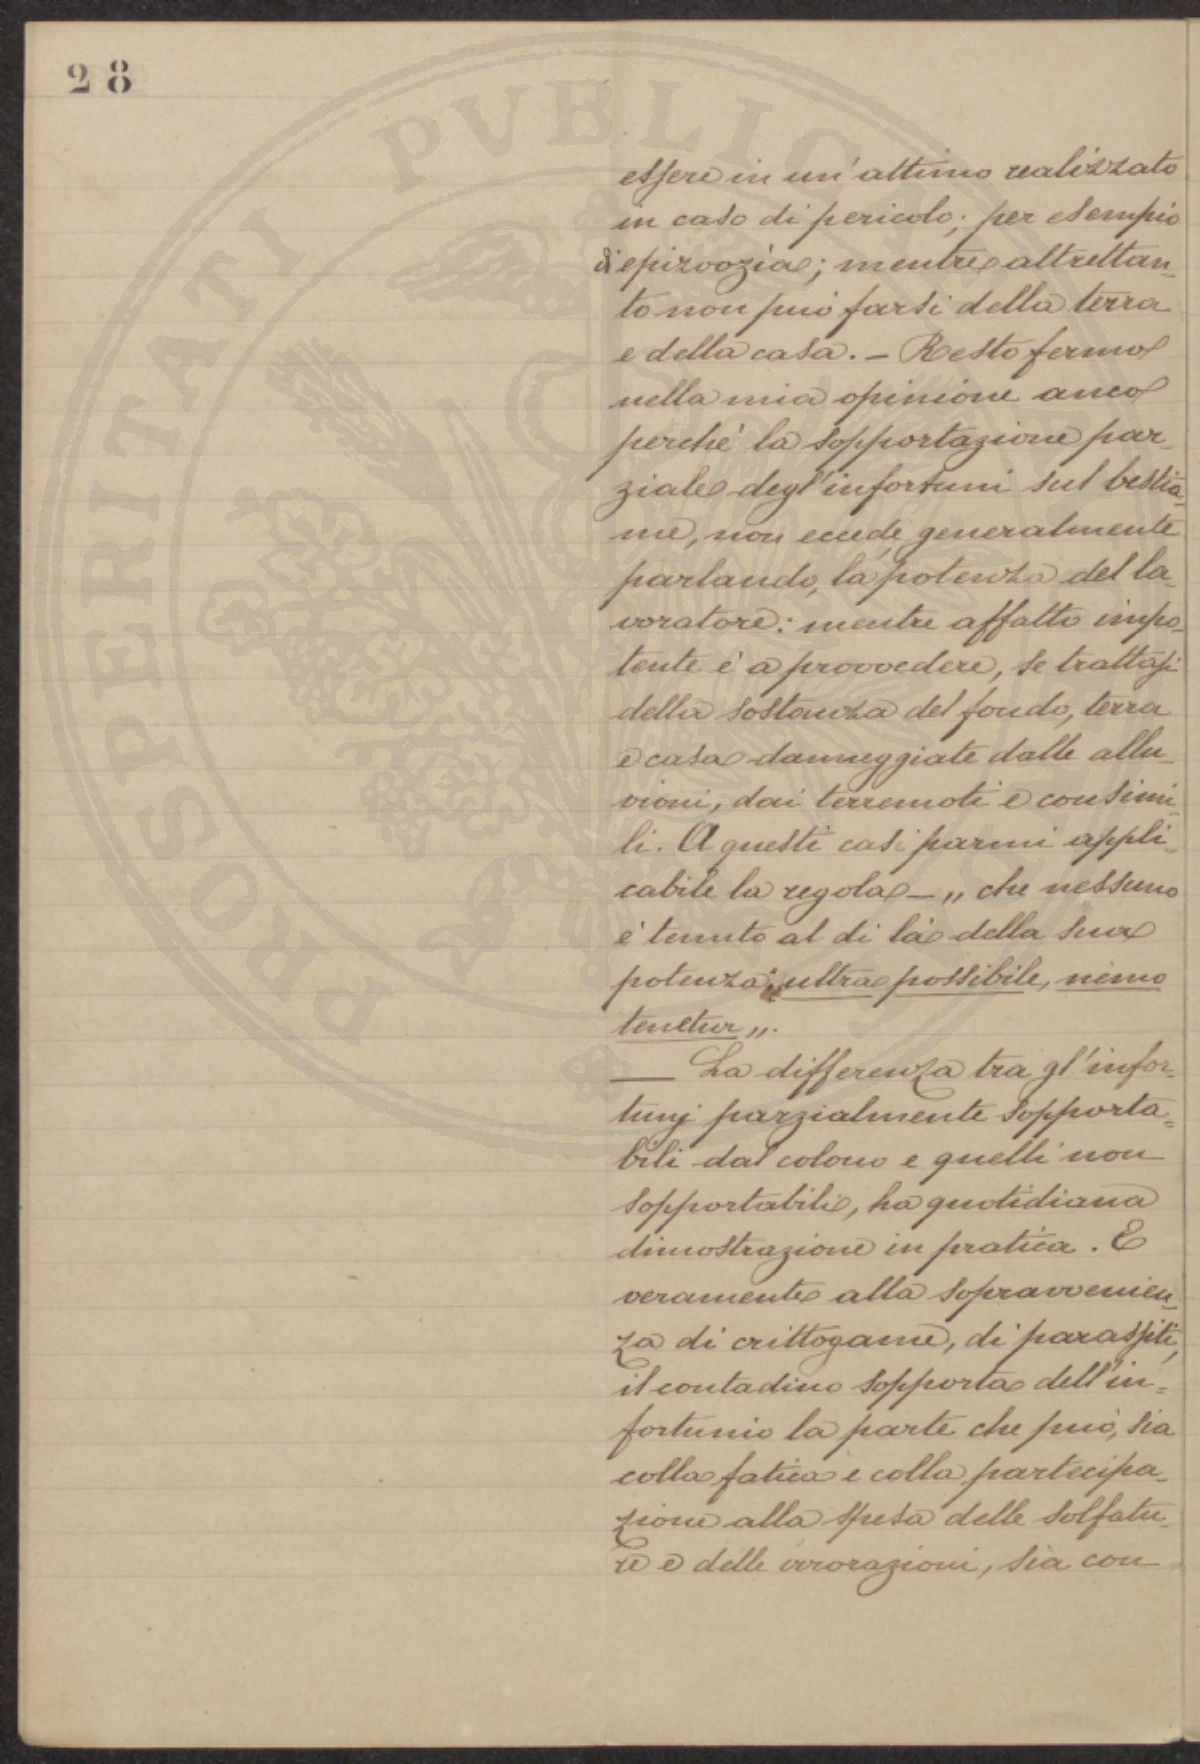 28
PROSPERITATI PVBLICAE
essere in un'attimo realizzato
in caso di pericolo; per esempio
di epizoozia; mentre altrettan-
to non può farsi della terra
e della casa. - Resto fermo
nella mia opinione anco
perchè la sopportazione par-
ziale degl'infortuni sul bestia-
me, non eccede, generalmente
parlando, la potenza del la-
voratore: mentre affatto impo-
tente è a provvedere, se trattasi
della sostanza del fondo, terra
e casa danneggiate dalle allu-
vioni, dai terremoti e consimi-
li. A questi casi parmi appli-
cabile la regola - „ che nessuno
è tenuto al di là della sua
potenza: ultra possibile, nemo
tenetur „.
— La differenza tra gl'infor-
tunj parzialmente sopporta=
bili dal colono e quelli non
sopportabili, ha quotidiana
dimostrazione in pratica. E
veramente alla sopravvenien-
za di crittogame, di parassiti,
il contadino sopporta dell'in=
fortunio la parte che può, sia
colla fatica e colla partecipa-
zione alla spesa delle solfatu-
re e delle irrorazioni, sia con